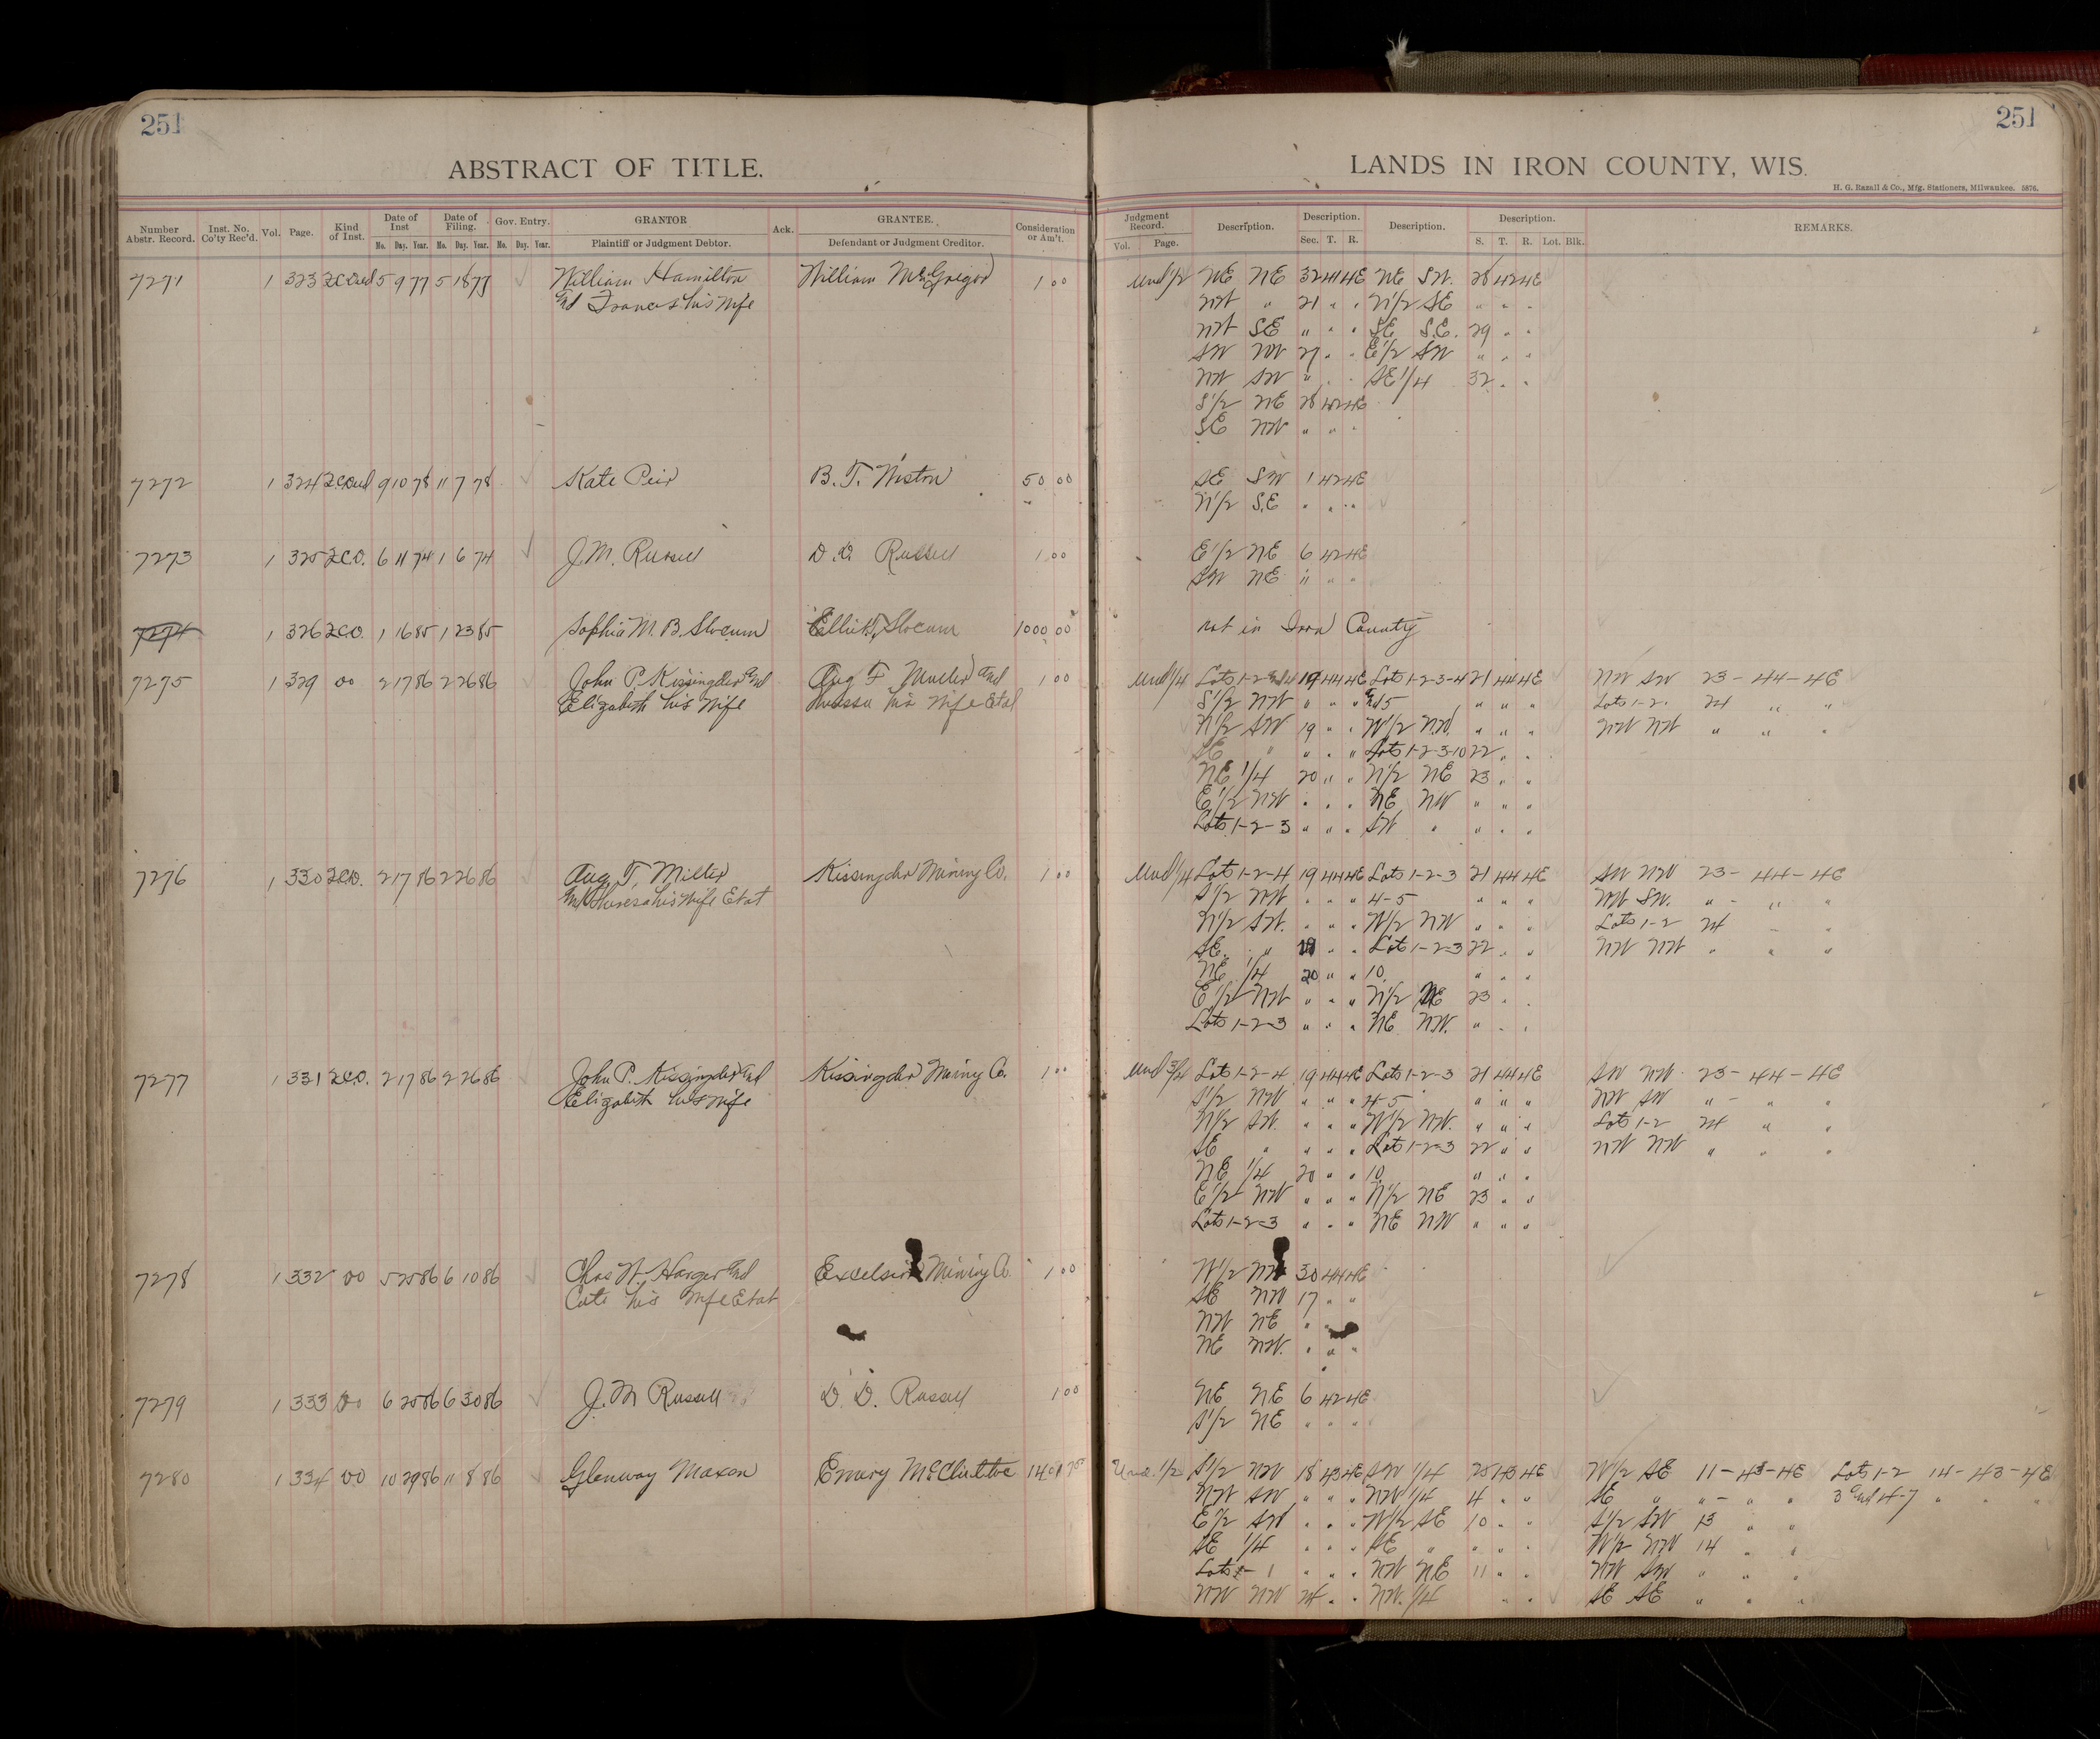 251
251
ABSTRACT OF TITLE.
LANDS IN IRON COUNTY, WIS.
H. G. Razall & Co., Mfg. Stationers, Milwaukee. 5876.
Number Abstr. Record. Inst. No. Co'ty Rec'd. Vol. Page. Kind of Inst. Date of Inst Date of Filing. Gov. Entry. GRANTOR Ack. GRANTEE. Consideration or Am't. Judgment Record. Description. Description. Description. Description. REMARKS.
Mo. Day. Year. Mo. Day. Year. Mo. Day. Year. Plaintiff or Judgment Debtor. Defendant or Judgment Creditor. Vol. Page. Sec. T. R. S. T. R. Lot. Blk.
7271 1 323 5 9 77 5 18 77 William Hamilton William McGregor 1 00 Und 1/2 NE NE 32 41 4E NE SW. 28 42 4E
and Frances his wife NW " 21 " " N1/2 SE " " "
NW SE " " " SE S.E. 29 " "
SW NW 27 " " E1/2 SW " " "
NW SW " " " SE1/4 32 " "
S1/2 NE 28 42 4E
SE NW " " "
7272 1 324 9 10 78 11 7 78 Kate Peir B. T. Weston 50 00 SE SW 1 42 4E
N1/2 S.E " " "
7273 1 325 2CO. 6 11 74 1 6 74 J. M. Russell D. D. Russell 1 00 E1/2 NE 6 42 4E
SW NE " " "
7274 1 326 2CO. 1 16 85 1 23 85 Sophia M. B. Slocum Elliott Slocum 1000 00 not in Iron County
7275 1 329 00 2 17 86 2 26 86 John P. Kissingder and Aug F Mueller and 1 00 Und 1/4 Lots 1-2 and 4 19 44 4E Lots 1-2-3-4 21 44 4E NW SW 23 - 44 - 4E
Elizabeth his wife his wife Etal S1/2 NW " " " and 5 " " " Lots 1-2. 24 " "
N1/2 SW 19 " " W1/2 N.W. " " " NW NW " " "
SE " " " " Lots 1-2-3-10 22 " "
NE 1/4 20 " " N1/2 NE 23 " "
E1/2 NW " " " NE NW " " "
Lots 1-2-3 " " " SW " " " "
7276 1 330 2CO. 2 17 86 2 26 86 Aug. F. Miller Kissingder Mining Co. 1 00 Und 1/4 Lots 1-2-4 19 44 4E Lots 1-2-3 21 44 4E SW NW 23 - 44 - 4E
and his wife Etal S1/2 NW " " " 4-5 " " " NW SW. " - " "
N1/2 SW. " " " W1/2 NW " " " Lots 1-2 24 " "
SE. " 19 " " Lots 1-2-3 22 " " NW NW " " "
NE 1/4 20 " " 10 " " "
E1/2 NW " " " N1/2 NE 23 " "
Lots 1-2-3 " " " NE NW. " " "
7277 1 331 2CO. 2 17 86 2 26 86 John P. Kissingder and Kissingder Mining Co. 1 00 Und 3/4 Lots 1-2-4 19 44 4E Lots 1-2-3 21 44 4E SW NW 23 - 44 - 4E
Elizabeth his wife S1/2 NW " " " 4-5 " " " NW SW " - " "
N1/2 SW. " " " W1/2 NW. " " " Lots 1-2 24 " "
SE " " " " Lots 1-2-3 22 " " NW NW " " "
NE 1/4 20 " " 10 " " "
E1/2 NW " " " N1/2 NE 23 " "
Lots 1-2-3 " " " NE NW " " "
7278 1 332 00 5 25 86 6 10 86 Chas W. Harger and Excelsior Mining Co. 1 00 W1/2 NW 30 44 4E
his wife Etal SE NW 17 " "
NW NE " "
NE NW. " " "
7279 1 333 00 6 25 86 6 30 86 J. M Russell D. D. Russell 1 00 NE NE 6 42 4E
S1/2 NE " " "
7280 1 334 00 10 29 86 11 8 86 Glenway Maxon Emory 1401 75 Und. 1/2 S1/2 NW 18 43 4E SW 1/4 25 43 4E W1/2 SE 11 - 43 - 4E Lots 1-2 14 - 43 - 4E
NW SW " " " NW 1/4 4 " " SE " " - " " 3 and 4-7 " " "
E1/2 SW " " " W1/2 SE 10 " " S1/2 SW 13 " "
SE 1/4 " " " SE " " " " W1/2 NW 14 " "
Lots - 1 " " " NW NE 11 " " NW SW " " "
NW NW 24 " " NW. 1/4 " " SE SE " " "